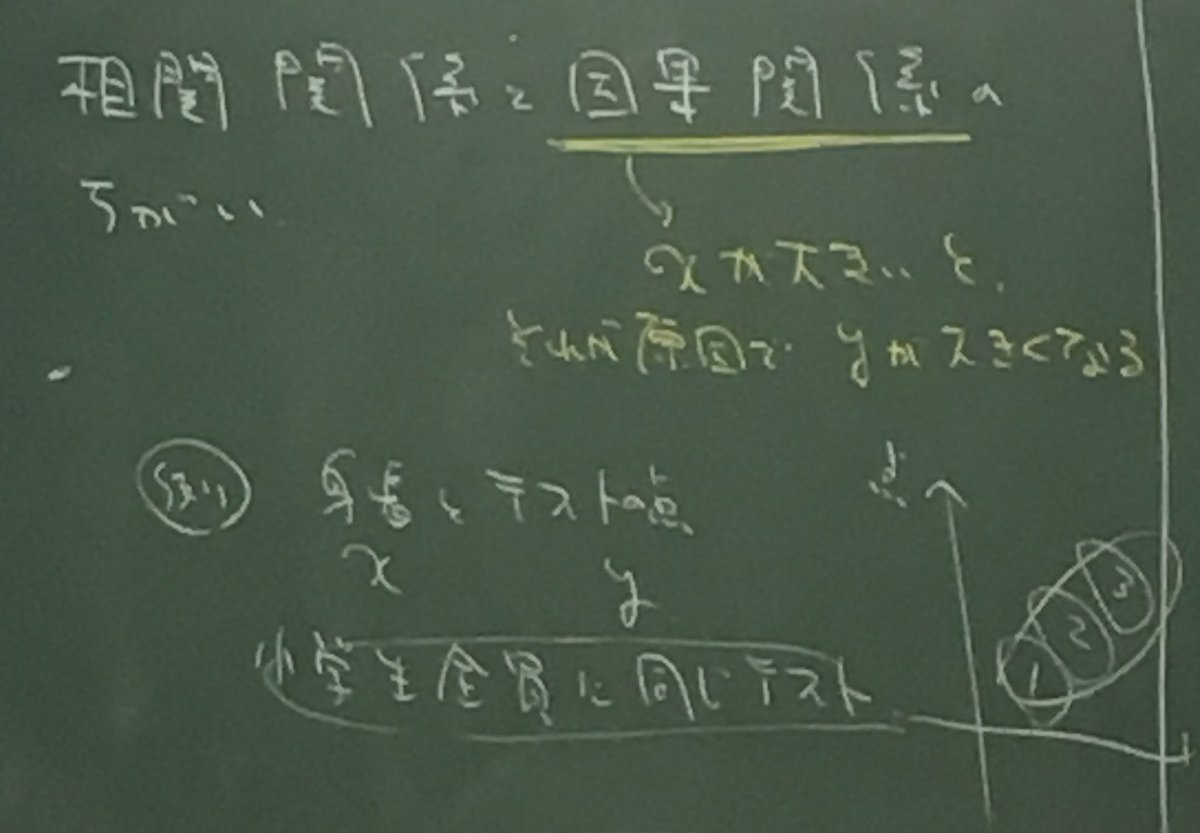 相関関係と因果関係の
ちがい
xが大きいと、
それが原因で yが大きくなる
例 身長とテストの点
x y
小学生全員に同じテスト
点
1
2
3